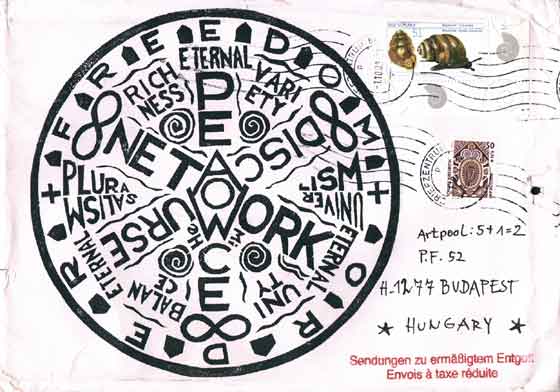 FREEDOM
ETERNAL
RICH
NESS
VARI
ETY
PEACE
NETWORK
DISCOURSE
PLURA
SALISM
ISM
UNIVER
ETERNAL
BALAN
CE
ETERNAL
UNI
TY
ORDER
51
50
BRIEFZENTRUM
Artpool: 5+1=2
P.F. 52
H-1277 BUDAPEST
* HUNGARY *
Sendungen zu ermäßigtem Entgelt
Envois à taxe réduite